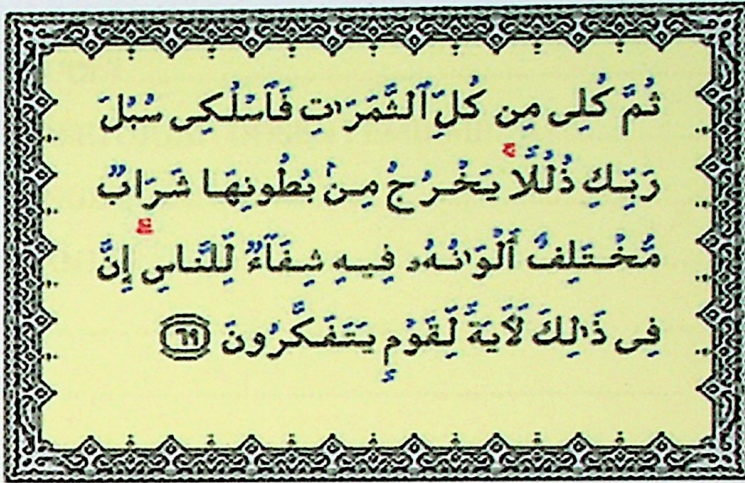 ثُمَّ كُلِى مِن كُلِّ ٱلثَّمَرَٰتِ فَٱسْلُكِى سُبُلَ
رَبِّكِ ذُلُلًا ۚ يَخْرُجُ مِنۢ بُطُونِهَا شَرَابٌ
مُّخْتَلِفٌ أَلْوَٰنُهُۥ فِيهِ شِفَآءٌ لِّلنَّاسِ ۗ إِنَّ
فِى ذَٰلِكَ لَءَايَةً لِّقَوْمٍ يَتَفَكَّرُونَ ٦٩